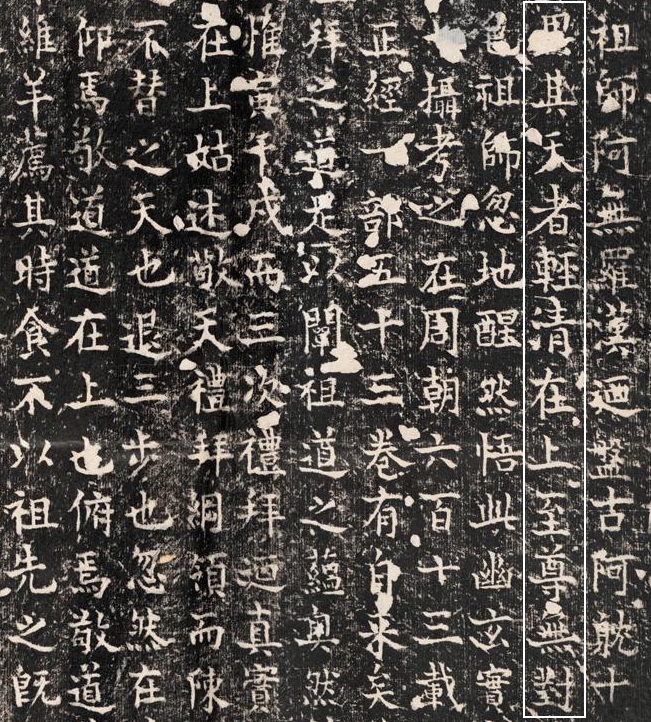 祖師阿無羅漢迺盤古阿躭十
思其天者輕清在上至尊無對
也祖師忽地醒然悟此幽玄實
攝考之在周朝六百十三載
正經一部五十三卷有自來矣
拜之道足以闡祖道之蘊奧然
惟寅午戌而三次禮拜迺真實
在上姑述敬天禮拜綱領而陳
不替之天也退三步也忽然在
仰焉敬道道在上也俯焉敬道
維羊薦其時食不以祖先之既